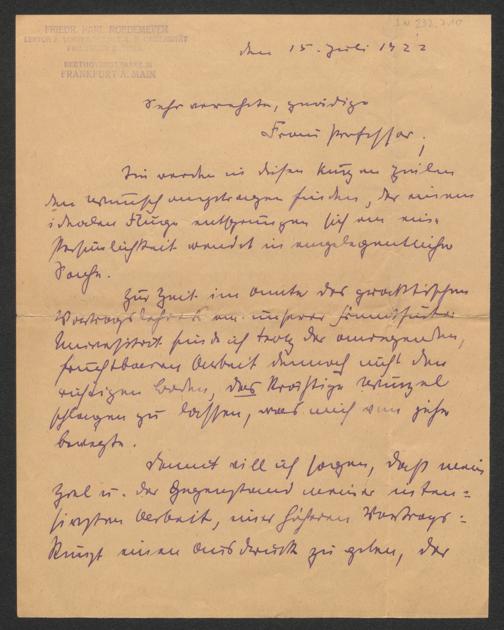 I N 232.710
FRIEDR. KARL ROEDEMEYER
LEKTOR
FRANKFURT A. MAIN
den 15. Juli 1922
Sehr verehrte, gnädige
Frau Professor,
Sie werden in diesen kurzen Zeilen
den Wunsch ausgetragen finden, der einem
idealen Fluge entsprungen sich an eine
Persönlichkeit wendet in angelegentlicher
Sache.
Zur Zeit im Amte des praktischen
Vortragslehrers an unserer Frankfurter
Universität finde ich trotz der anregenden,
fruchtbaren Arbeit dennoch nicht den
richtigen Boden, das kräftige Wurzel
schlagen zu lassen, was mich von jeher
bewegte.
Damit will ich sagen, daß mein
Ziel u. der Gegenstand meiner inten=
sivsten Arbeit, einer höheren Vortrags=
kunst einen Ausdruck zu geben, der